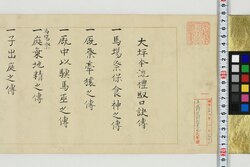 大坪夲流禮馭口訣傳
一馬場祭保食神之傳
一厩祭牽猿之傳
一厩中以験馬巫之傳
一庭乗地精之傳
一子出庭之傳